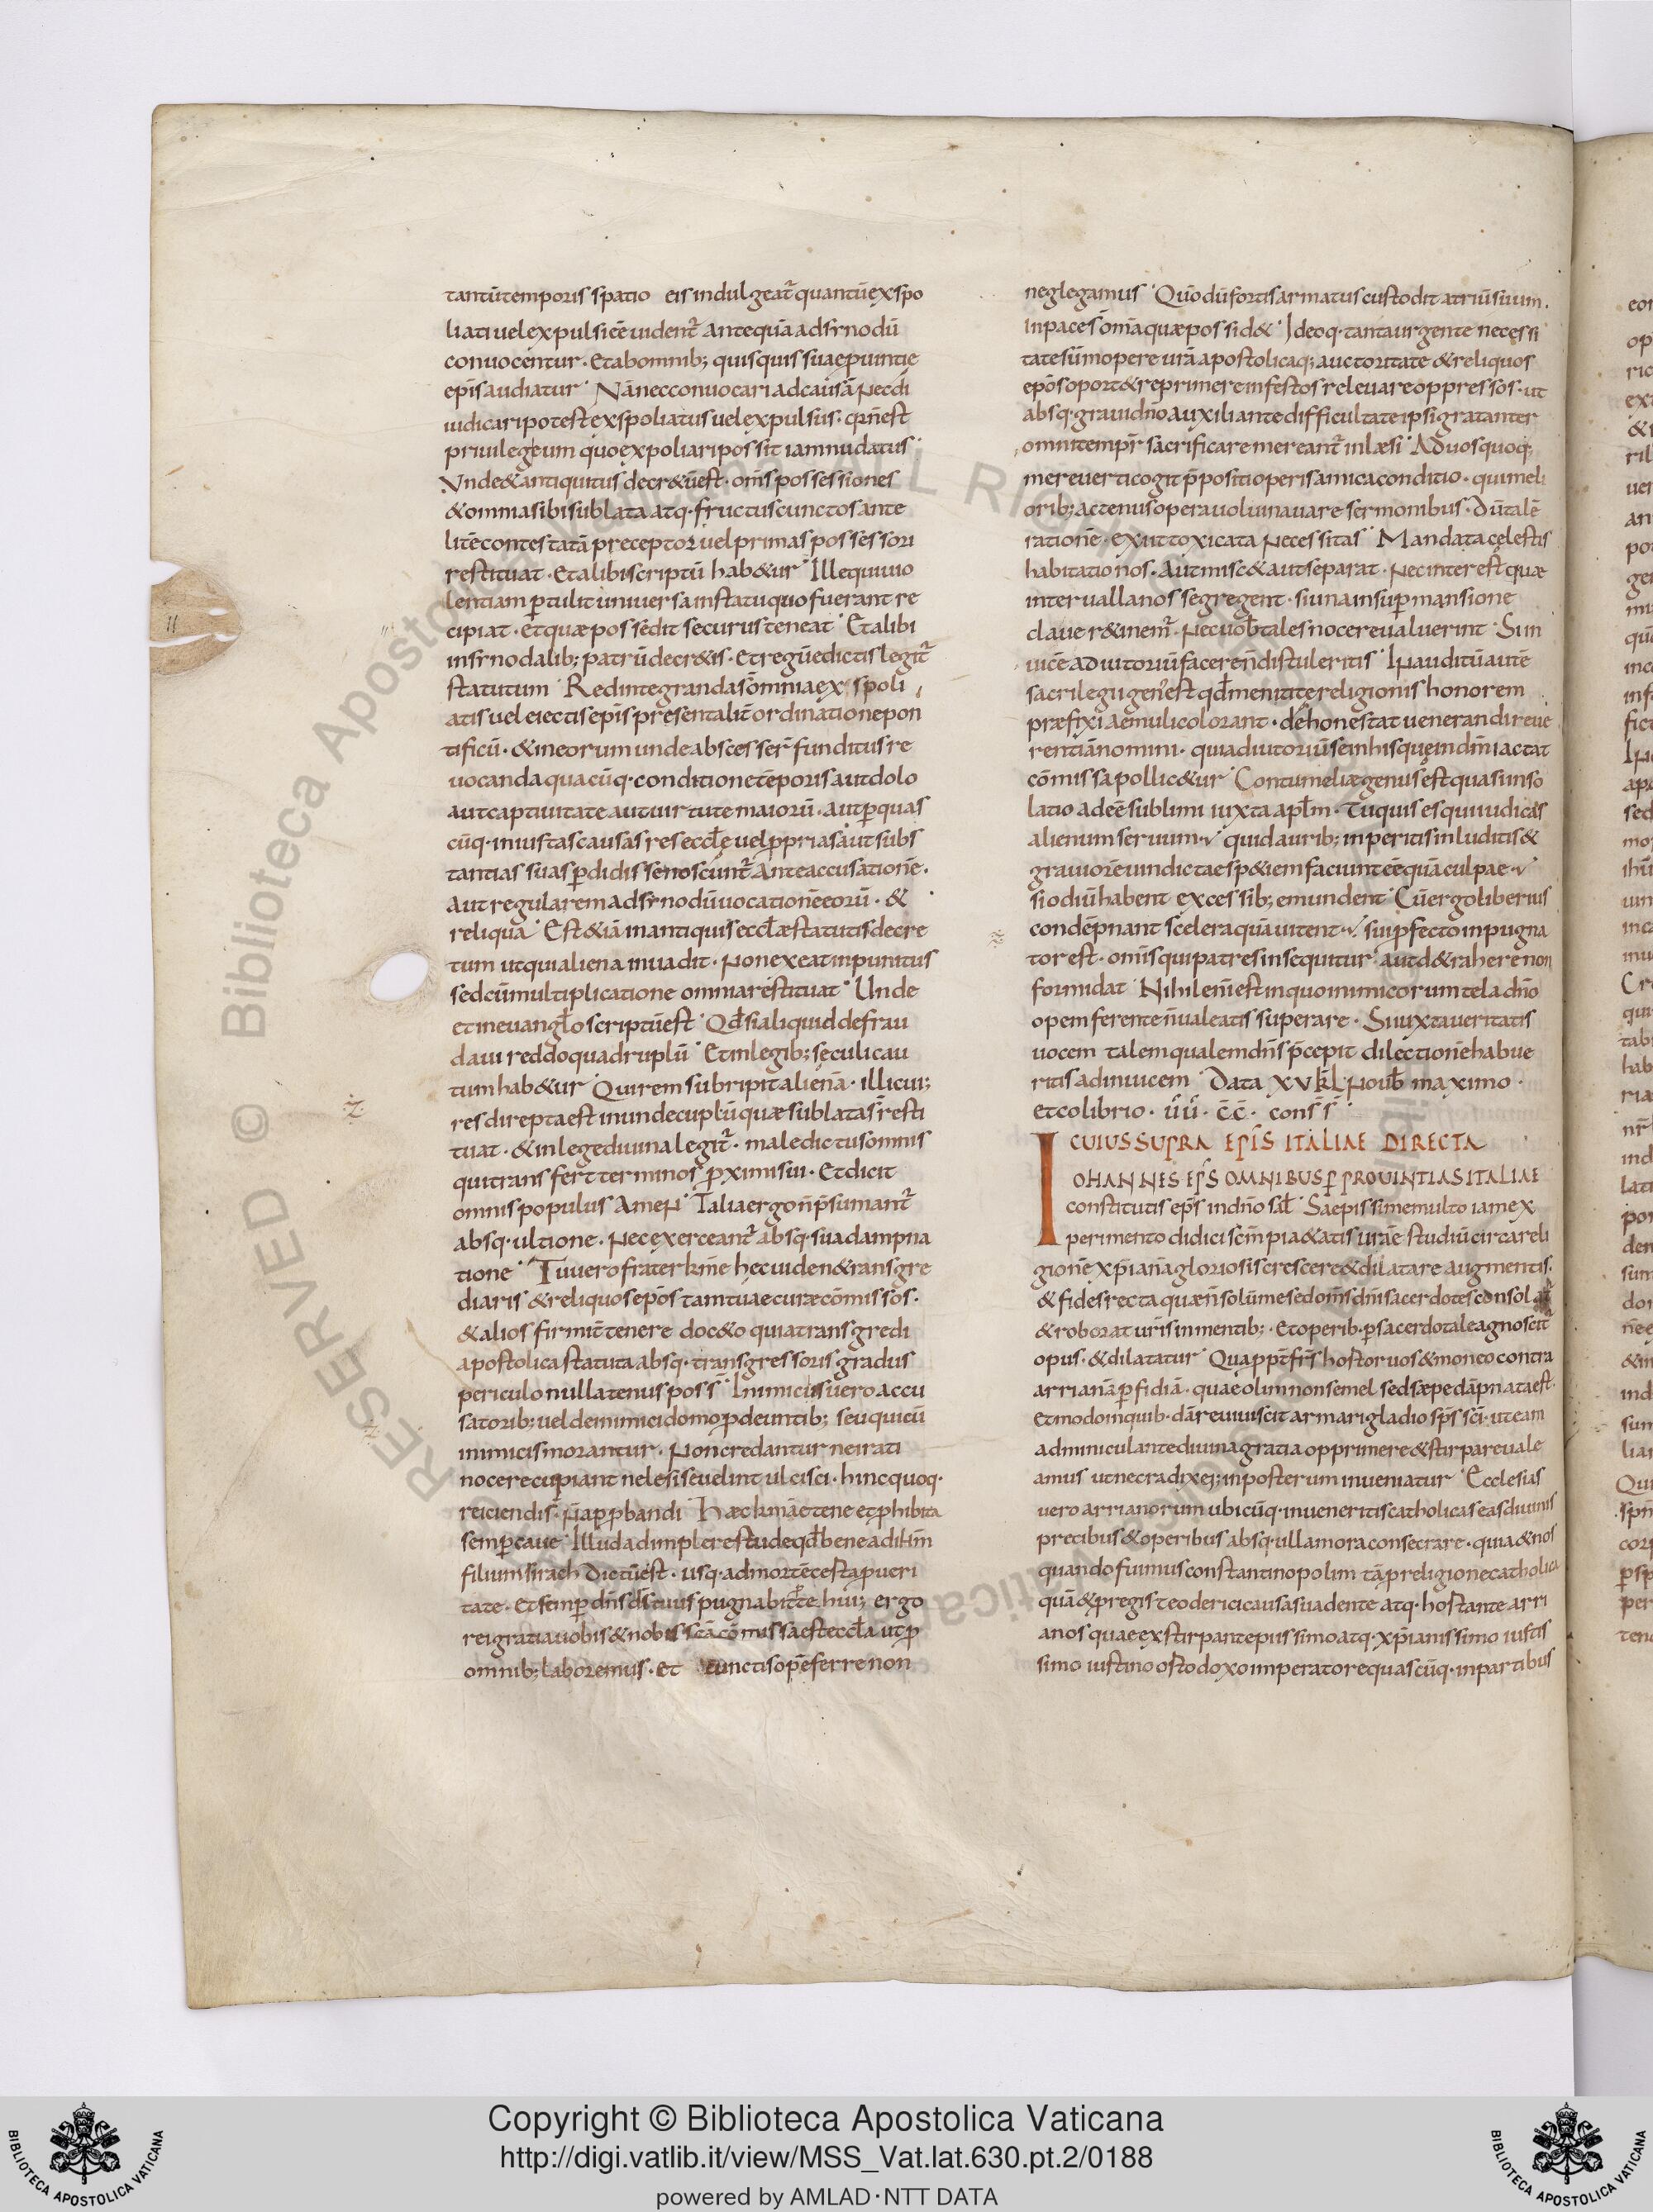 tantū temporis spatio eis indulgeat᷑ quantū exspo
liati uel expulsi eē uident᷑ antequā ad sinodū
conuocentur · Et ab omnib; quisquis suae prouintie
epīs audiatur · Nā nec conuocari ad causā nec di
iudicari potest exspoliatus uel expulsus · qn̄ est
priuilegeum quo expoliari possit iam nudatus ·
Vnde & antiquitus decr&ū est · om̄s possessiones
& omnia sibi sublata atq · fructus cunctos ante
litē contestatā preceptor uel primas possessori
restituat · Et alibi scriptū hab&ur · Ille qui uio
lentiam ꝑtulit uniuersa in statu quo fuerant re
cipiat · et quæ possedit securus teneat · Et alibi
in sinodalib; patrū decr&is · et regū edictis legit᷑
statutum · Redintegranda s̄ omnia exspoli
atis uel eiectis epīs presentalit̄ ordinatione pon
tificū · & in eorum unde abscesser̄ funditus re
uocanda quacūq · conditione tēporis aut dolo
aut captiuitate aut uirtute maiorū · aut ꝑ quas
cūq · iniustas causas res eccłę uel ꝓprias aut subs
tantias suas ꝑdidisse noscunt᷑ Ante accusationē ·
aut regularem ad sinodū uocationē eorū · &
reliqua · Est &iā in antiquis eccłæ statutis decre
tum ut qui aliena inuadit · non exeat inpunitus
sed cū multiplicatione omnia restituat · Unde
et in euangło scriptū est · Qđ si aliquid defrau
daui reddo quadruplū · Et in legib; sęculi cau
tum hab&ur · Qui rem subripit alienā · illi cui;
res direpta est in undecuplū quæ sublata s̄ resti
tuat · & in lege diuina legit᷑ · maledictus omnis
qui transfert terminos ꝓximi sui · Et dicit
omnis populus Amen · Talia ergo n̄ p̄sumant᷑
absq · ultione · nec exerceant᷑ absq · sua dampna
tione · Tu uero frater kme hec uiden& ransgre
diaris & reliquos ep̄os tam tuae curæ cōmissos ·
& alios firmit̄ tenere doc&o quia transgredi
apostolica statuta absq · transgressoris gradus
periculo nullatenus poss̄ · Inimicis uero accu
satorib; uel de inimici domo ꝓdeuntib; seu qui cū
inimicis morantur · Non credantur ne irati
nocere cupiant ne lesi se uelint ulcisci · hinc quoq ·
reiciendi s̄ · n̄ apꝓbandi · Hæc kmāe tene et ꝓhibita
semꝑ caue · Illud adimplere stude qđ bene ad ihm̄
filium sirach dictū est · usq · ad mortē certa ꝓ ueri
tate · et semꝑ dn̄s d̄s tuus pugnabit ꝓ te. hui; ergo
rei gratia uobis & nobis sc̄a cōmissa est eccła ut ꝓ
omnib; laboremus · et cunctis opē ferre non
neglegamus · Quō dū fortis armatus custodit atriū suum ·
in pace s̄ om̄ia quæ possid& · Ideoq · tanta urgente necessi
tate sūmopere ur̄a apostolicaq; auctoritate & reliquos
ep̄os oport& reprimere infestos releuare oppressos · ut
absq · graui dn̄o auxiliante difficultate ipsi gratanter
omni tempr̄ sacrificare mereant᷑ inlæsi · Ad uos quoq;
me reuerti cogit p̄positi operis amica conditio · qui meli
orib; actenus opera uoluin auare sermonibus · dū talē
rationē · exiit toxicata necessitas · Mandata cęlestis
habitatio nos · Aut misc& aut separat · nec interest quæ
interualla nos segregent · si una insuꝑ mansione
claue r&inem̄ · nec uob̄ tales nocere ualuerint · Si in
uicē adiutoriū facere n̄ distuleritis · Inauditū autē
sacrilegii gen᷒ est qđ mentite religionis honorem
præfixi aemuli colorant · dehonestat uenerandi reue
rentiā nomini · qui adiutoriū se in his quę in dn̄i actat
cōmissa pollic&ur · Contumeliæ genus est quasi inso
latio ad eē sublimi iuxta apłm · Tu quis es qui iudicas
alienum seruum · quid aurib; inperitis inluditis &
grauiorē uindictae sp&iem faciunt eē quā culpae ·
si odiū habent excessib; emundent · Cū ergo liberius
condēpnant scelera quā uitent · sui ꝑfecto inpugna
tor est · om̄is qui patres insequitur · aut d&rahere non
formidat · Nihil enī est in quo inimicorum tela dn̄o
opem ferente n̄ ualeatis superare · Si iuxta ueritatis
uocem talem qualem dn̄s p̄cepit dilectionē habue
ritis adinuicem · Data xv kł nouƀ maximo ·
et colibrio · ūū · c̄c̄ · cons̄s̄ ·
ICUIUS SUPRA EPĪS ITALIAE DIRECTA
OHANNES EP̄S OMNIBUS ꝑ PROUINTIAS ITALIAE
constitutis ep̄s in dn̄o sał · Saepissime multo iam ex
perimento didicis cn̄m pi&atis ur̄ae studiū circa reli
gionē xp̄ianā gloriosis crescere & dilatare augmentis ·
& fides recta quæ n̄ solū me sed om̄s dn̄i sacerdotes consolat᷑
& roborat ur̄is in mentib; · Et operib · ꝑ sacerdotale agnoscit᷑
opus · & dilatatur · Quapp̄t fr̄s hostor uos & moneo contra
arrianā ꝑfidiā · quae olim non semel sed sæpe dāpnata est ·
et modo inquib · dā reuiuiscit armari gladio sp̄s sc̄i · ut eam
adminiculante diuina gratia opprimere & stirpare uale
amus ut nec radix ei; in posterum inueniatur · Ecclesias
uero arrianorum ubicūq · inueneritis catholicas eas diuinis
precibus & operibus absq · ulla mora consecrare · quia & nos
quando fuimus constantinopolim tā ꝓ religione catholica
quā & ꝓ regis teoderici causa suadente atq · hostante arri
anos quae exstirpante piissimo atq · xp̄ianissimo iustis
simo iustino ostodoxo imperatore quascūq · in partibus
11
Copyright © Biblioteca Apostolica Vaticana
http://digi.vatlib.it/view/MSS_Vat.lat.630.pt.2/0188
powered by AMLAD·NTT DATA
BIBLIOTECA APOSTOLICA VATICANA
BIBLIOTECA APOSTOLICA VATICANA